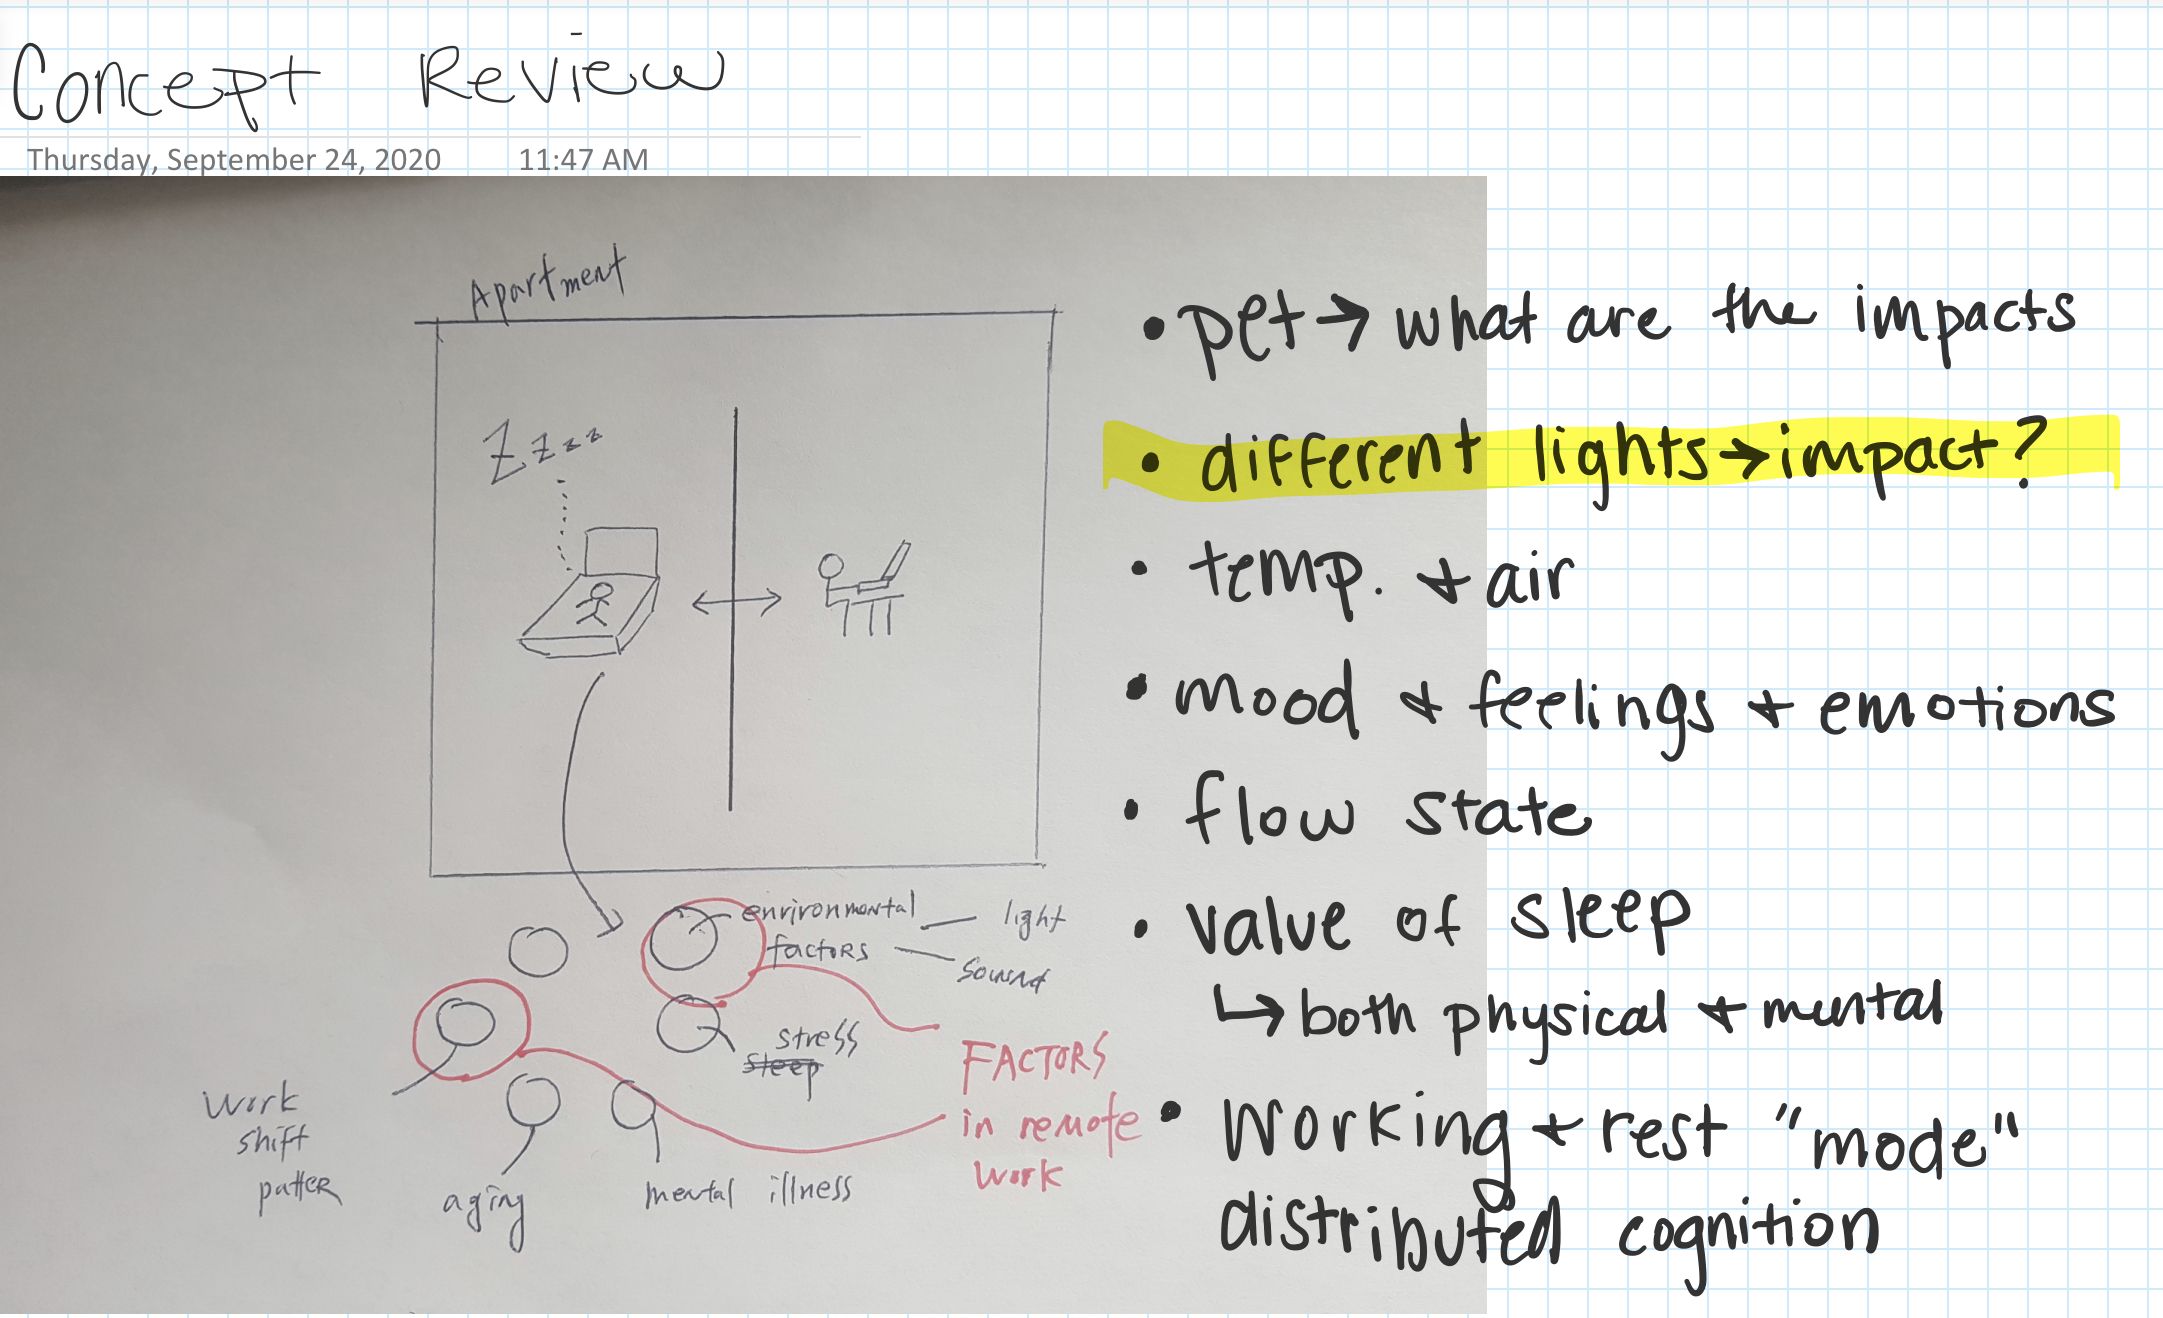 Concept Review
Thursday, September 24, 2020 11:47 AM
Apartment
Zzzz
environmental
factors
light
sound
stress
sleep
work
shift
patter
aging
mental illness
FACTORS
in remote
work
• pet → what are the impacts
• different lights → impact?
• temp. + air
• mood + feelings + emotions
• flow state
• value of sleep
↳ both physical + mental
• working + rest "mode"
distributed cognition